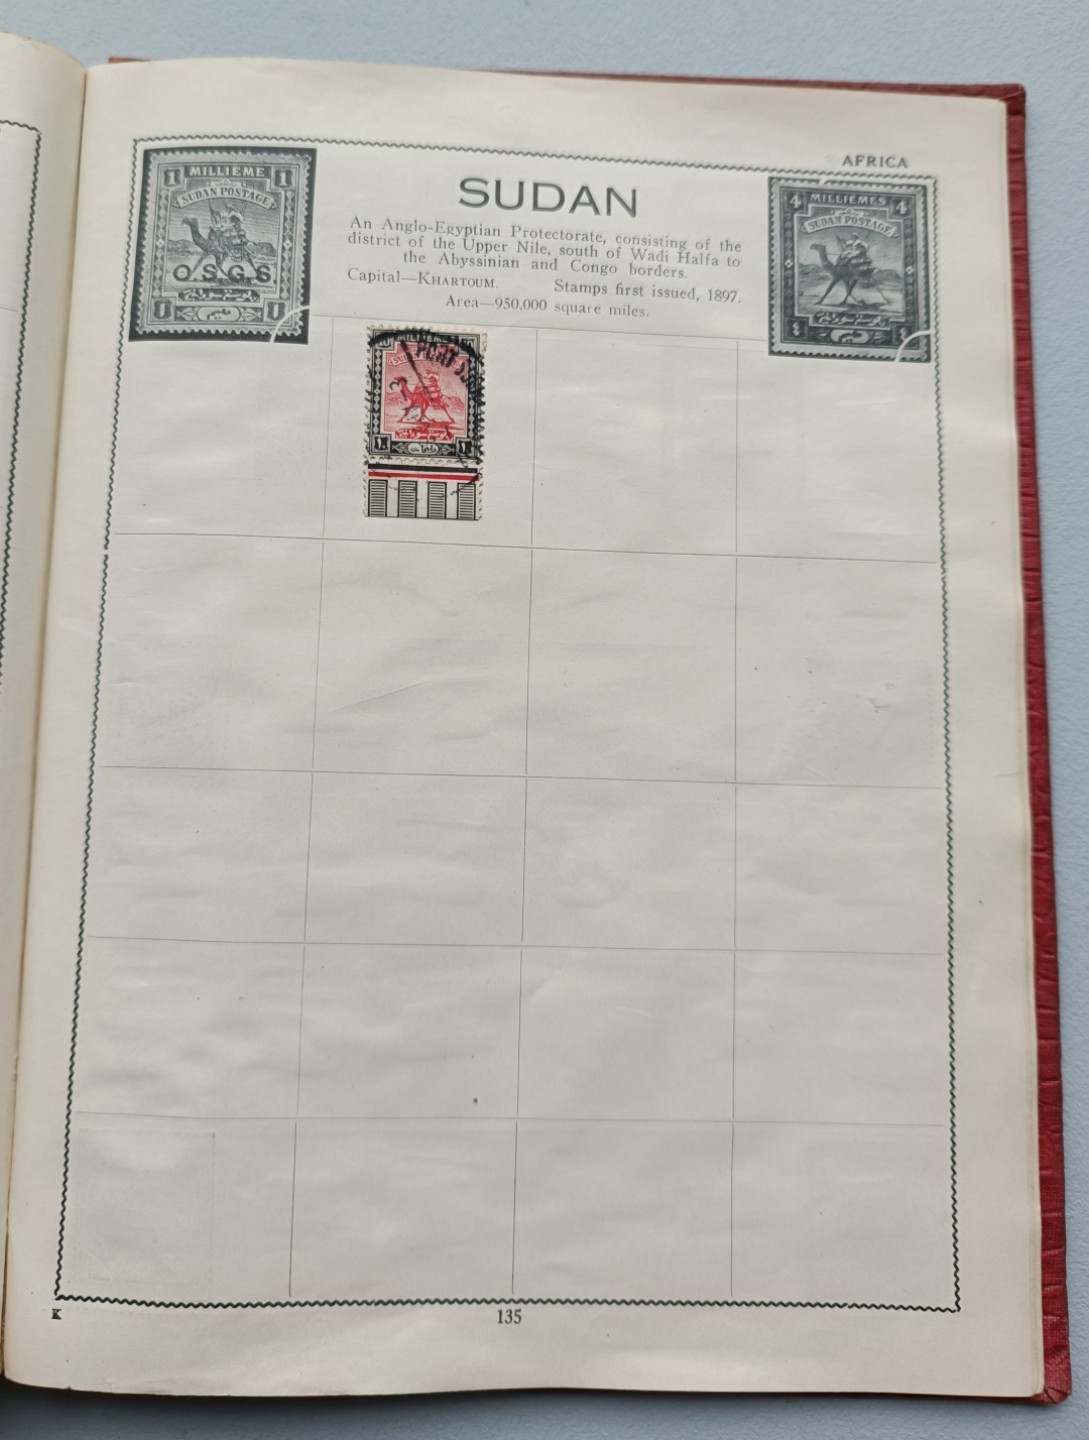 AFRICA
1 MILLIEME 1
SUDAN POSTAGE
O.S.G.S
SUDAN
An Anglo-Egyptian Protectorate, consisting of the
district of the Upper Nile, south of Wadi Halfa to
the Abyssinian and Congo borders.
Capital—KHARTOUM. Stamps first issued, 1897.
Area—950,000 square miles.
4 MILLIEMES 4
SUDAN POSTAGE
10 MILLIEMES 10
PORT
K
135